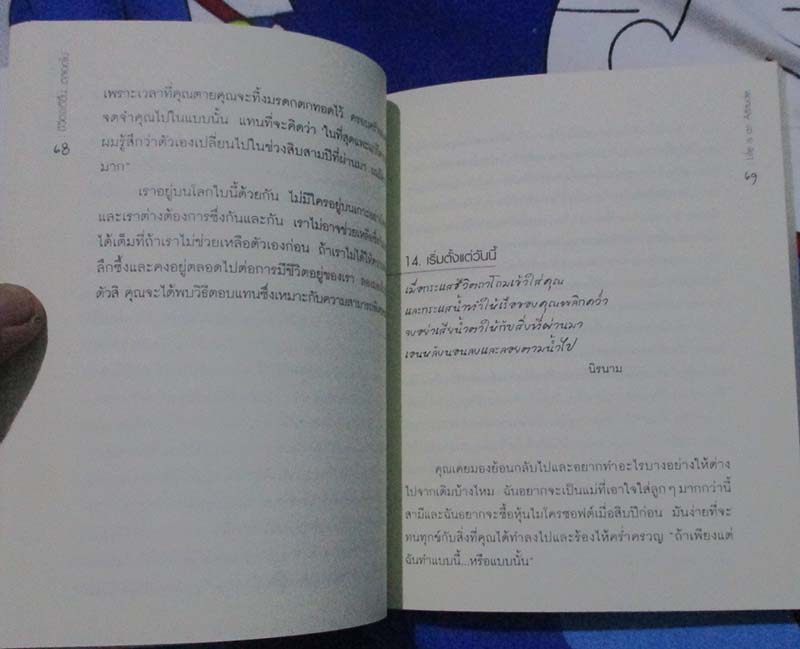 68
เพราะเวลาที่คุณตายคุณจะทิ้งมรดกตกทอดไว้
จดจำคุณไปในแบบนั้น แทนที่จะคิดว่า ในที่สุด
ผมรู้สึกว่าตัวเองเปลี่ยนไปในช่วงสิบสามปีที่ผ่านมา
มาก"
เราอยู่บนโลกใบนี้ด้วยกัน ไม่มีใครอยู่บนเกาะ
และเราต่างต้องการซึ่งกันและกัน เราไม่อาจช่วยเหลือ
ได้เต็มที่ถ้าเราไม่ช่วยเหลือตัวเองก่อน ถ้าเราไม่ได้
ลึกซึ้งและคงอยู่ตลอดไปต่อการมีชีวิตอยู่ของเรา
ตัวสิ คุณจะได้พบวิธีตอบแทนซึ่งเหมาะกับความสามารถ
Life is an Attitude
69
14. เริ่มตั้งแต่วันนี้
เมื่อกระแสชีวิตถาโถมเข้าใส่คุณ
และกระแสน้ำทำให้เรือของคุณพลิกคว่ำ
จงอย่าเสียน้ำตาให้กับสิ่งที่ผ่านมา
เอนหลังนอนลงและลอยตามน้ำไป
นิรนาม
คุณเคยมองย้อนกลับไปและอยากทำอะไรบางอย่างให้ต่าง
ไปจากเดิมบ้างไหม ฉันอยากจะเป็นแม่ที่เอาใจใส่ลูกๆ มากกว่านี้
สามีและฉันอยากจะซื้อหุ้นไมโครซอฟต์เมื่อสิบปีก่อน มันง่ายที่จะ
ทนทุกข์กับสิ่งที่คุณได้ทำลงไปและร้องไห้คร่ำครวญ "ถ้าเพียงแต่
ฉันทำแบบนี้...หรือแบบนั้น"